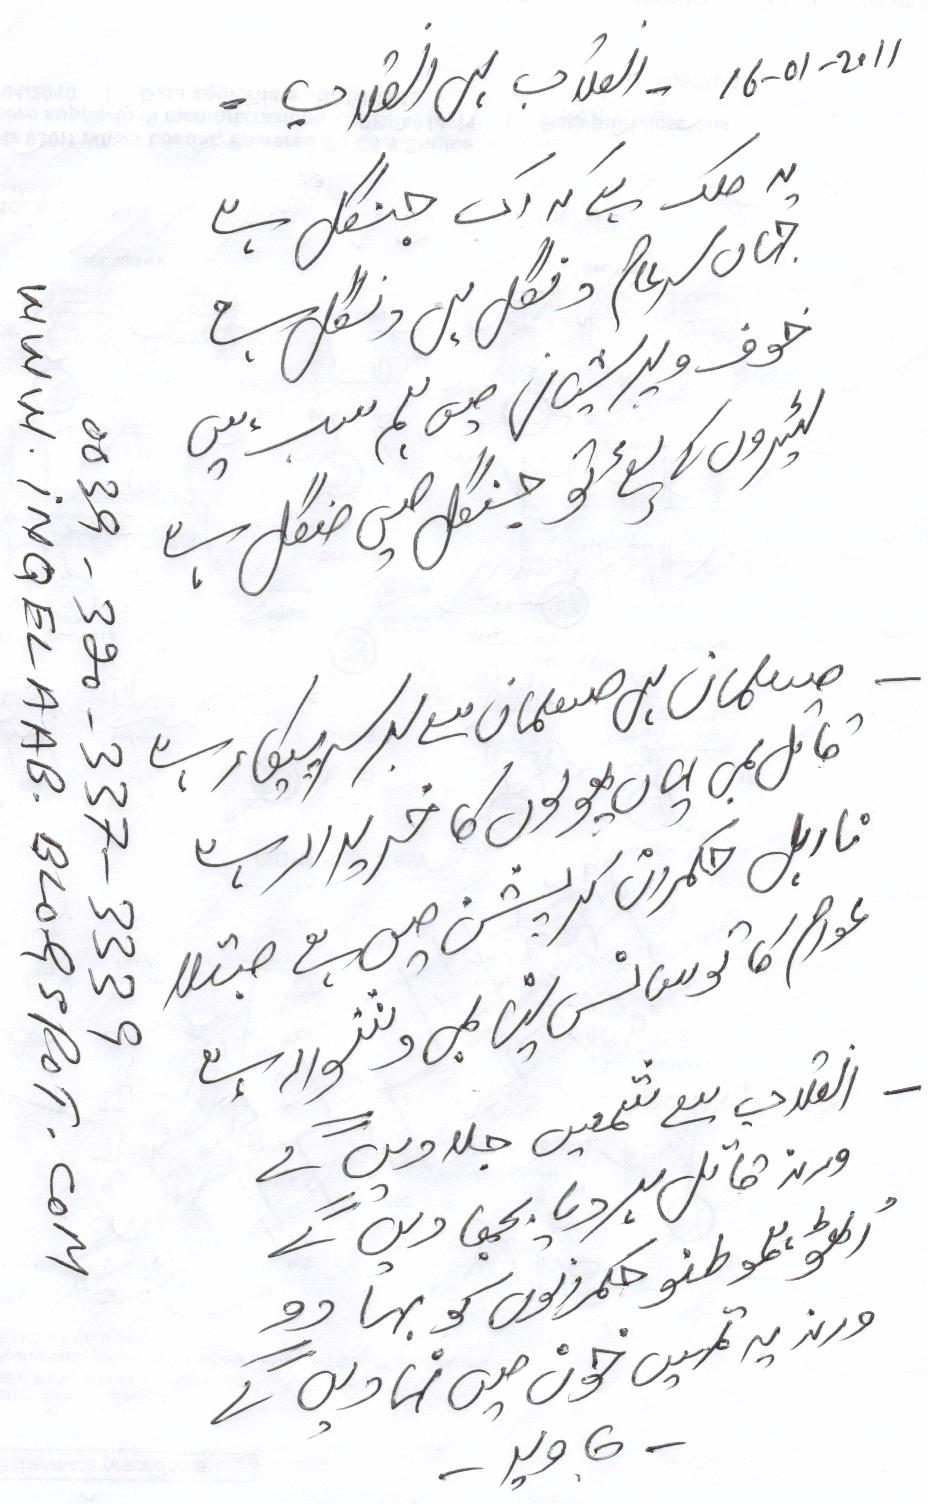 16-01-2011 - انقلاب ہی انقلاب -
یہ ملک ہے کہ اک جنگل ہے
جہاں سرعام دنگل ہی دنگل ہے
خوف و پریشانی میں ہم سب ہیں
لٹیروں کے لئے تو جنگل میں منگل ہے
- مسلمان ہی مسلمان سے برسرپیکار ہے
قاتل بھی یہاں پھولوں کا خریدار ہے
نااہل حکمران کرپشن میں ہے مبتلا
عوام کا تو سانس لینا بھی دشوار ہے
- انقلاب سے شمعیں جلا دیں گے
ورنہ قاتل ہر دیا بجھا دیں گے
اُٹھو ہم وطنو حکمرانوں کو بہا دو
ورنہ یہ تمہیں خون میں نہا دیں گے
- جاوید -
0039-320-337-3339
WWW.INQELAAB.BLOGSPOT.COM